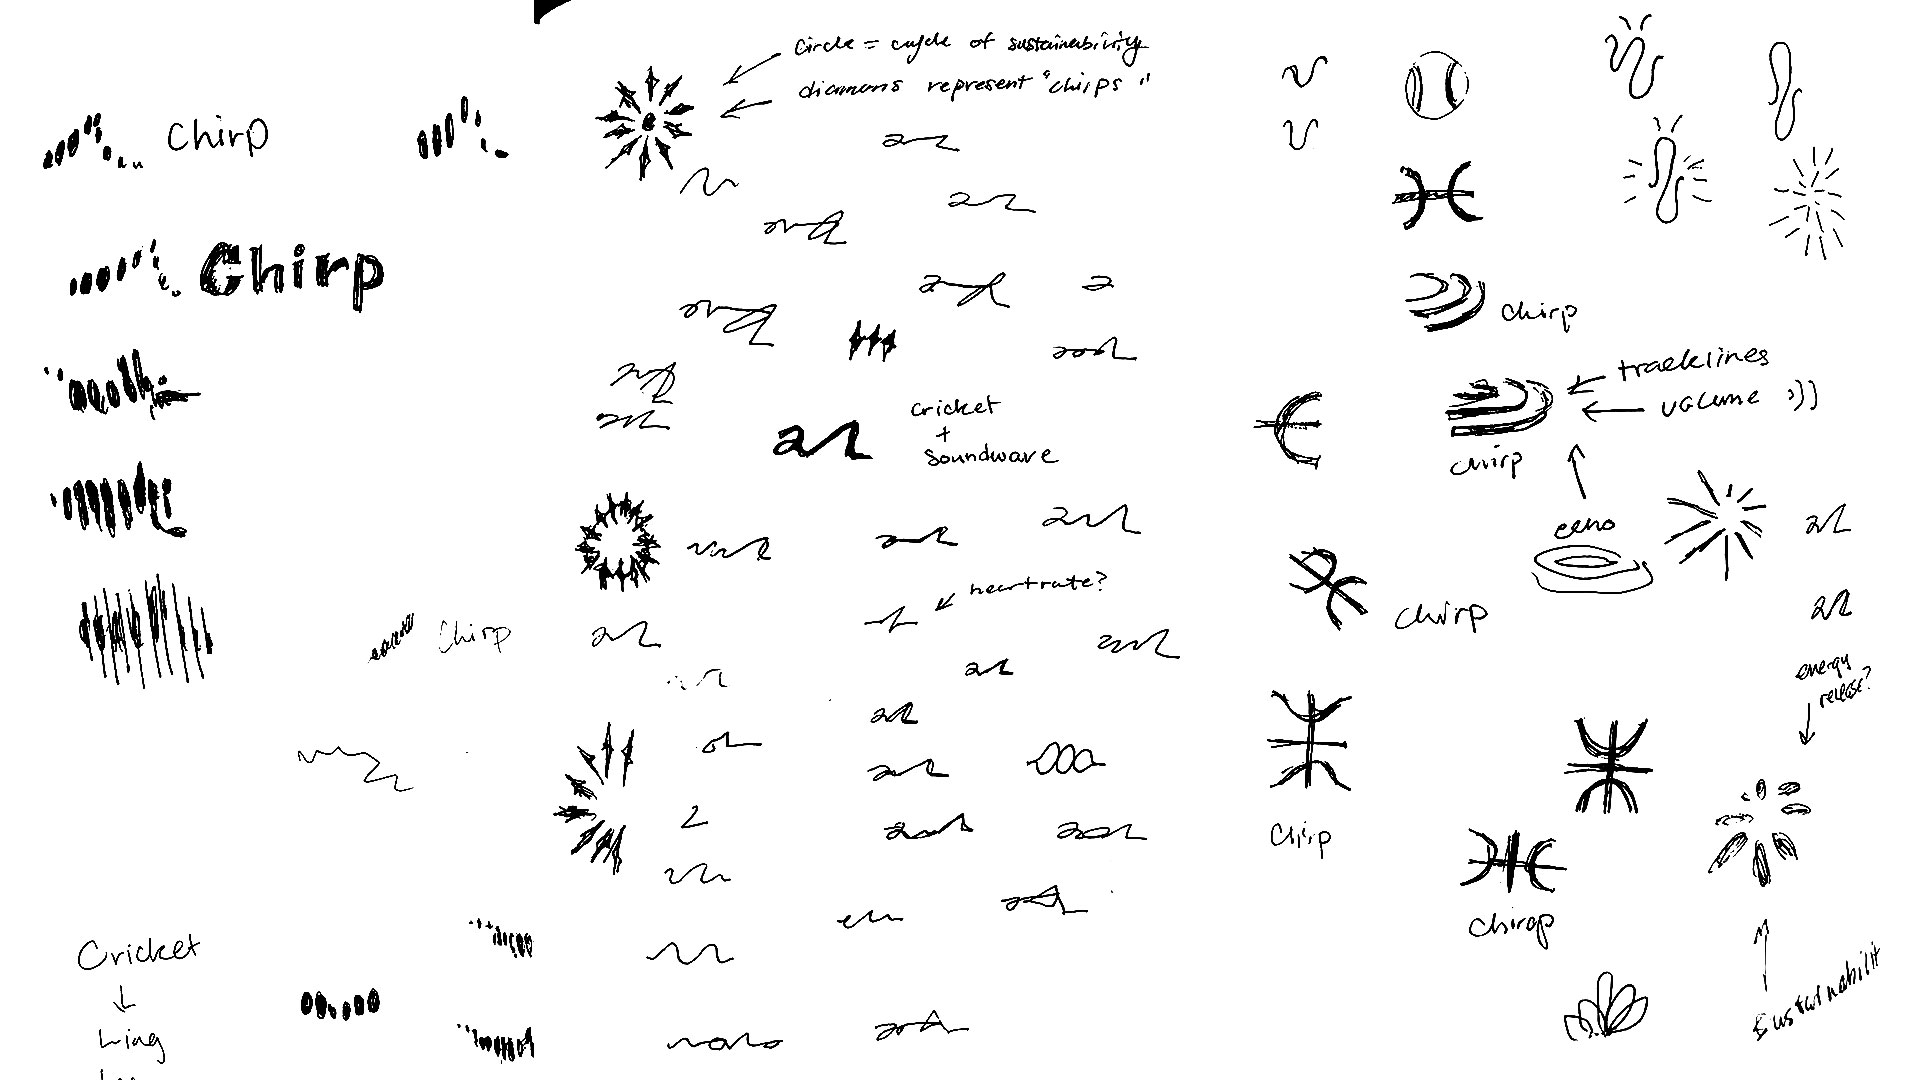 Circle = cycle of sustainability
diamons represent "chirps"
Chirp
Chirp
chirp
cricket
+
soundwave
tracklines
volume :))
chirp
echo
heartrate?
Chirp
Chirp
energy
release?
Chirp
Chirap
Cricket
Sustainabilit